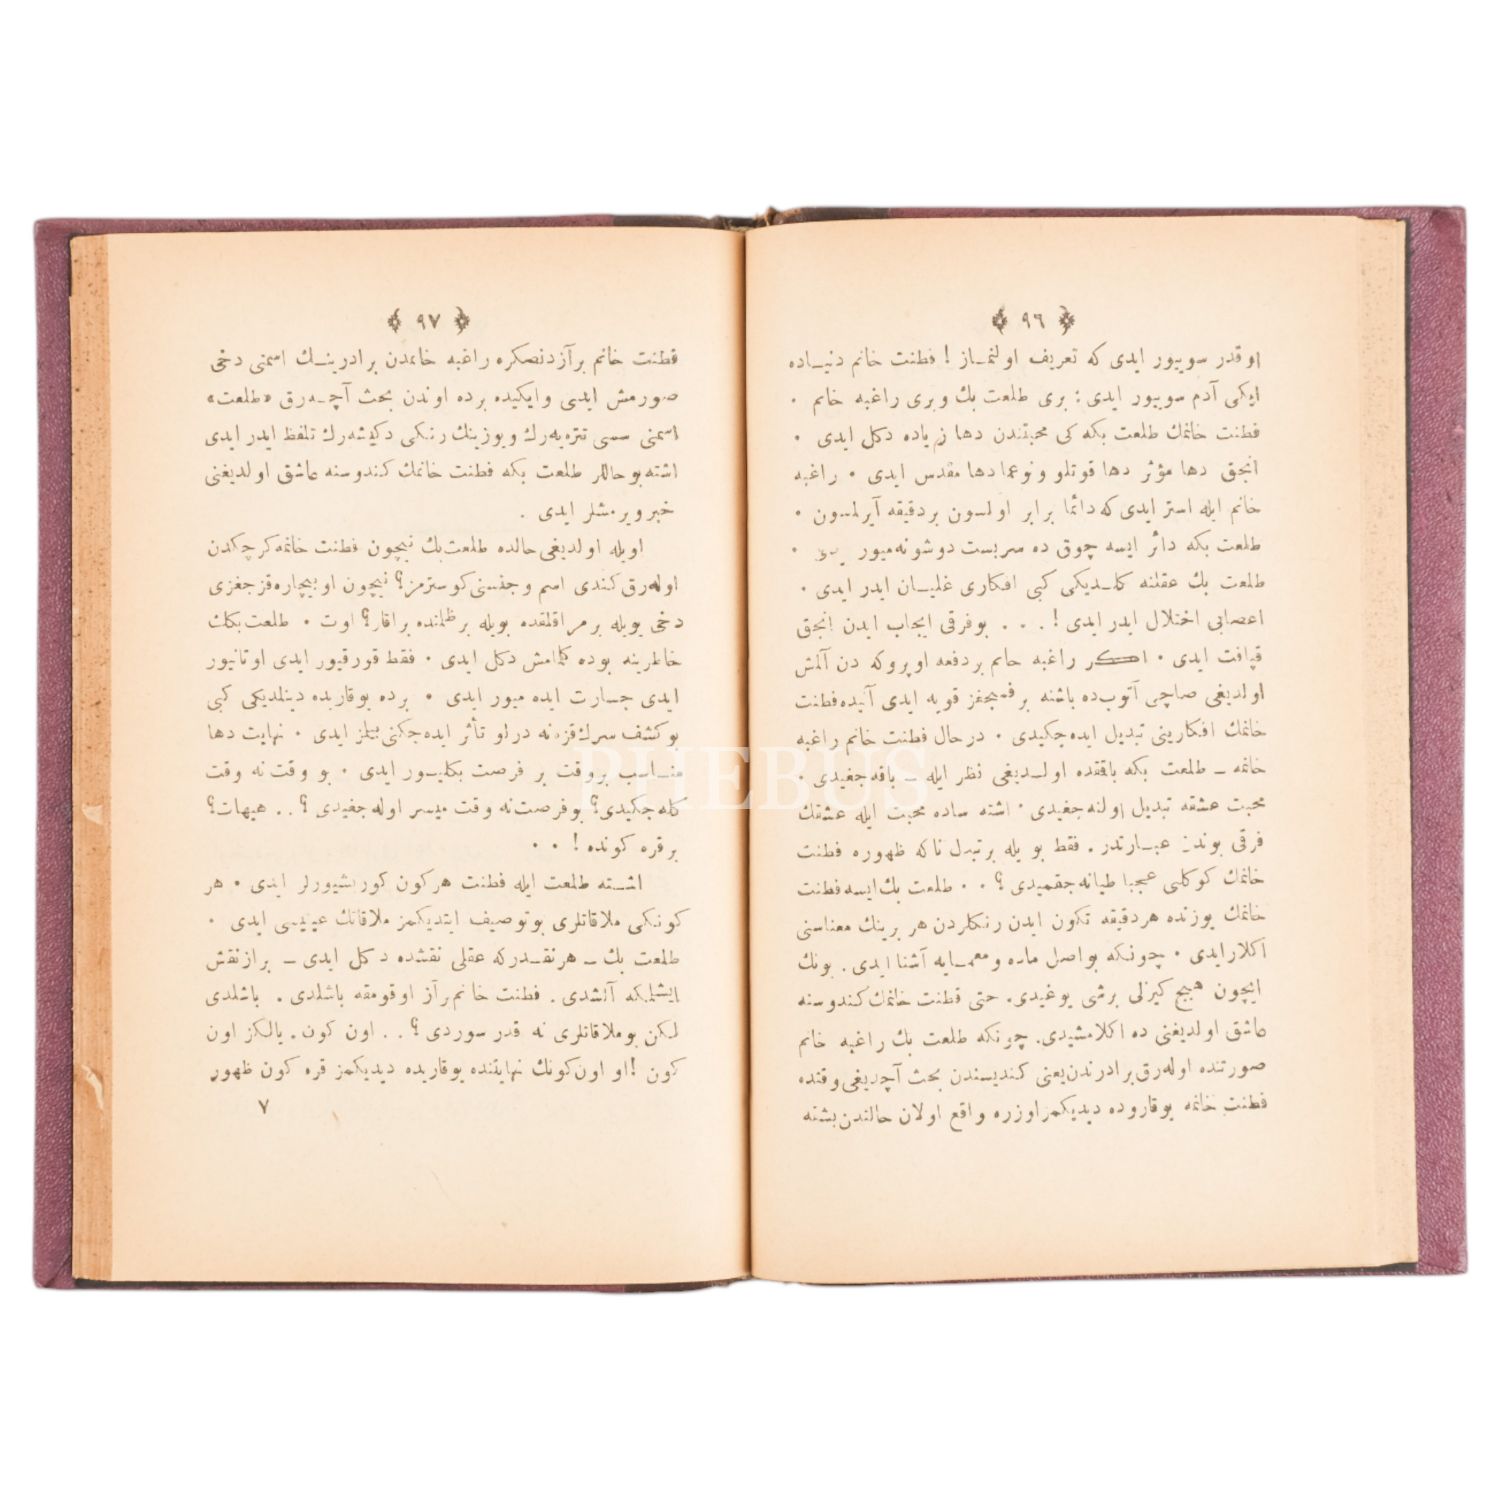 ٩٦
او قدر سوييور ايدى كه تعريف اولنماز ! فطنت خانم دنياده
ايكى آدم سوييور ايدى : برى طلعت بك وبرى راغبه خانم .
فطنت خانمك طلعت بكه كى محبتندن دها زياده دكل ايدى .
انجق دها مؤثر دها قوتلو ونوعما دها مقدس ايدى . راغبه
خانم ايله استر ايدى كه دائما برابر اولسون بردقيقه آيرلمسون .
طلعت بكه دائر ايسه چوق ده سربست دوشونه ميور يدى .
طلعت بك عقلنه كلديكى كبى افكارى غليان ايدر ايدى .
اعصابى اختلال ايدر ايدى ! . . . بوفرقى ايجاب ايدن انجق
قيافت ايدى . اكر راغبه خانم بردفعه اوپروكه دن آلمش
اولديغى صاچى آتوب ده باشنه برفسجغز قويه ايدى آنيده فطنت
خانمك افكارينى تبديل ايده جكيدى . درحال فطنت خانم راغبه
خانمه ـ طلعت بكه باققده اولديغى نظر ايله ـ باقه جغيدى .
محبت عشقه تبديل اولنه جغيدى . اشته ساده محبت ايله عشقك
فرقى بوندن عبارتدر . فقط بويله برتبدل ناكه ظهوره فطنت
خانمك كوكلى عجبا طيانه جقميدى ؟ . . طلعت بك ايسه فطنت
خانمك يوزنده هردقيقه تكون ايدن رنكلردن هر برينك معناسنى
اكلار ايدى . چونكه بواصل ماده ومعمايه آشنا ايدى . بونك
ايچون هيچ كيزلى برشى يوغيدى . حتى فطنت خانمك كندوسنه
عاشق اولديغنى ده اكلامشيدى . چونكه طلعت بك راغبه خانم
صورتنده اوله رق برادرندن يعنى كنديسندن بحث آچديغى وقتده
فطنت خانمه يوقاروده ديديكمز اوزره واقع اولان حالندن بشته
٩٧
فطنت خانم برآزدنصكره راغبه خانمدن برادرينك اسمنى دخى
صورمش ايدى وايكيده برده اوندن بحث آچه رق «طلعت»
اسمنى سسى تتره يه رك ويوزينك رنكى دكيشه رك تلفظ ايدر ايدى
اشته بوحاللر طلعت بكه فطنت خانمك كندوسنه عاشق اولديغنى
خبر ويرمشلر ايدى .
اويله اولديغى حالده طلعت بك نيچون فطنت خانمه كرچكدن
اوله رق كندى اسم وجنسنى كوسترمز ؟ نيچون اوبيچاره قزجغزى
دخى بويله برمراقلقده بويله برظلمنده براقار ؟ اوت . طلعت بكك
خاطرينه بوده كلمامش دكل ايدى . فقط قورقيور ايدى اوتانيور
ايدى جسارت ايده ميور ايدى . برده يوقاريده دينلديكى كبى
بوكشف سرك قزه نه درلو تأثر ايده جكنى بيلمز ايدى . نهايت دها
مناسب بروقت بر فرصت بكليور ايدى . بو وقت نه وقت
كله جكيدى ؟ بوفرصت نه وقت ميسر اوله جغيدى ؟ . . هيهات ؟
برقره كونده ! . .
اشته طلعت ايله فطنت هركون كوريشيورلر ايدى . هر
كونكى ملاقاتلرى بوتوصيف ايتديكمز ملاقاتك عينيسى ايدى .
طلعت بك ـ هرنقدركه عقلى نقشده دكل ايدى ـ برازنقش
ايشلمكه آلشدى . فطنت خانم برآز اوقومقه باشلدى . باشلدى
لكن بوملاقاتلرى نه قدر سوردى ؟ . . اون كون . يالكز اون
كون ! او اون كونك نهايتنده يوقاريده ديديكمز قره كون ظهور
٧
PHEBUS